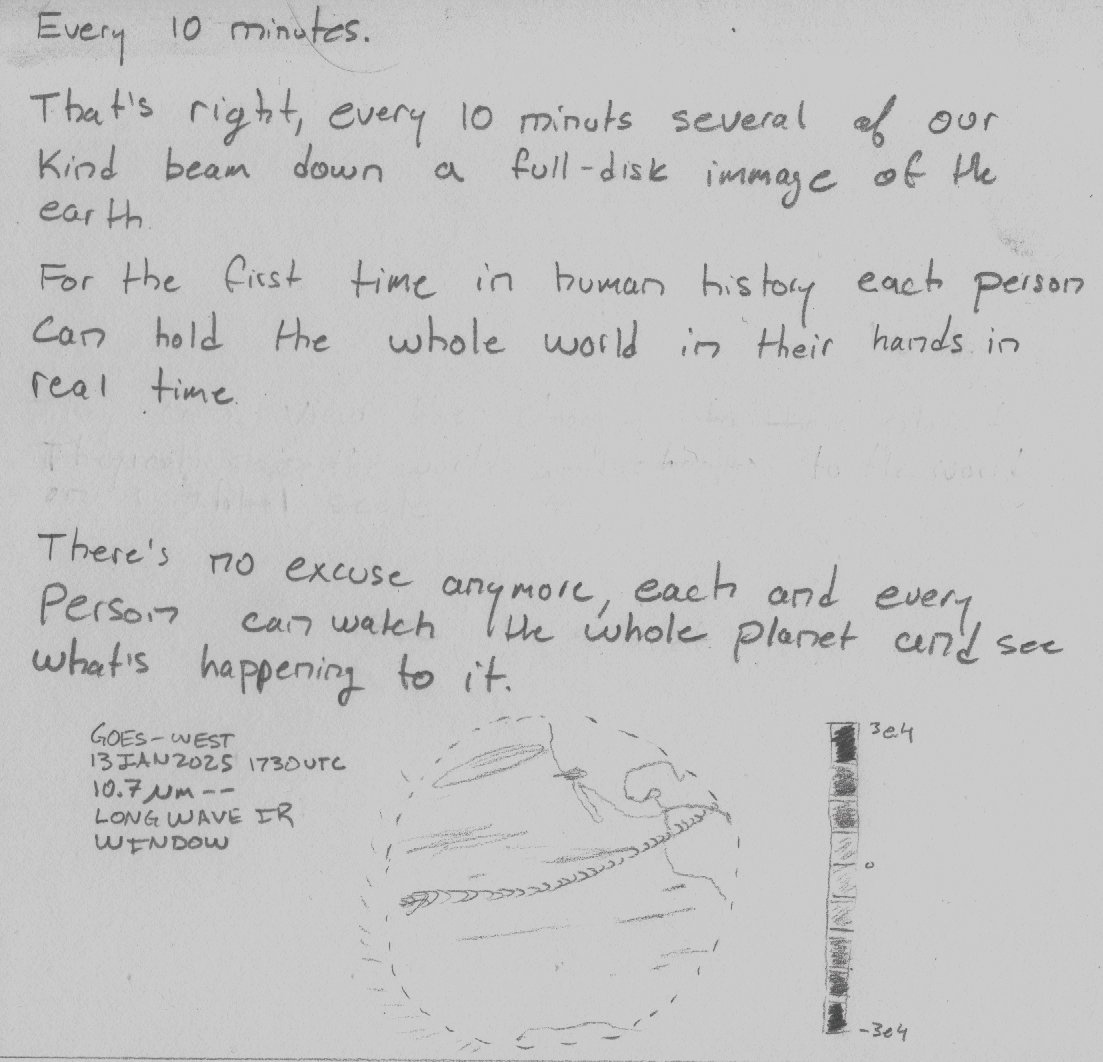 Every 10 minutes.
That's right, every 10 minuts several of our
Kind beam down a full-disk immage of the
earth
For the first time in human history each person
Can hold the whole world in their hands in
real time.
There's no excuse anymore, each and every
Person can watch the whole planet and see
what's happening to it.
GOES-WEST
13 JAN 2025 1730 UTC
10.7 μm --
LONG WAVE IR
WINDOW
3e4
0
-3e4